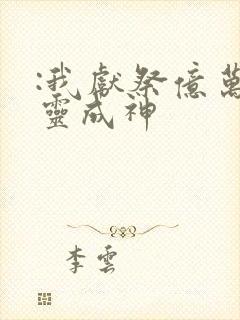 :我獻祭億萬
靈成神
李雲